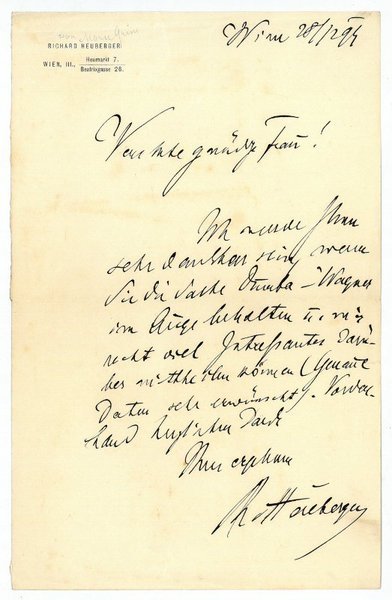 RICHARD HEUBERGER
WIEN, III., Heumarkt 7.
Beatrixgasse 26.
Wien 28/12 94
Verehrte gnädige Frau!
Ich würde Ihnen
sehr dankbar sein, wenn
Sie die Sache Dumba-Wagner
im Auge behalten u. mir
recht viel Interessantes darü-
ber mittheilen können (Genaue
Daten sehr erwünscht). Vorder-
hand herzlichen Dank
Ihr ergebener
Rich Heuberger